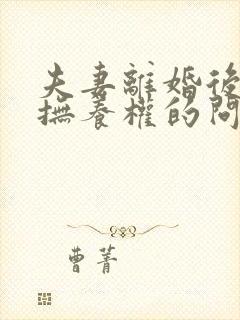 夫妻離婚後
撫養權的問
曹菁